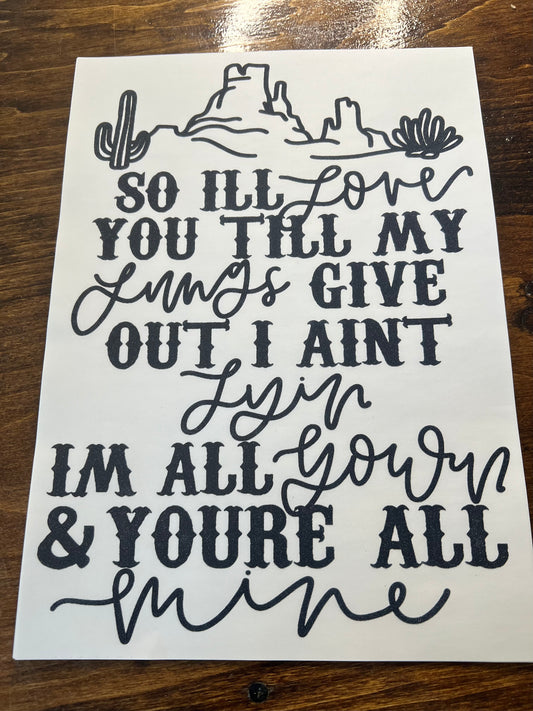 SO ILL Love
YOU TILL MY
Lungs GIVE
OUT I AINT
Lyin
IM ALL yourn
& YOURE ALL
mine